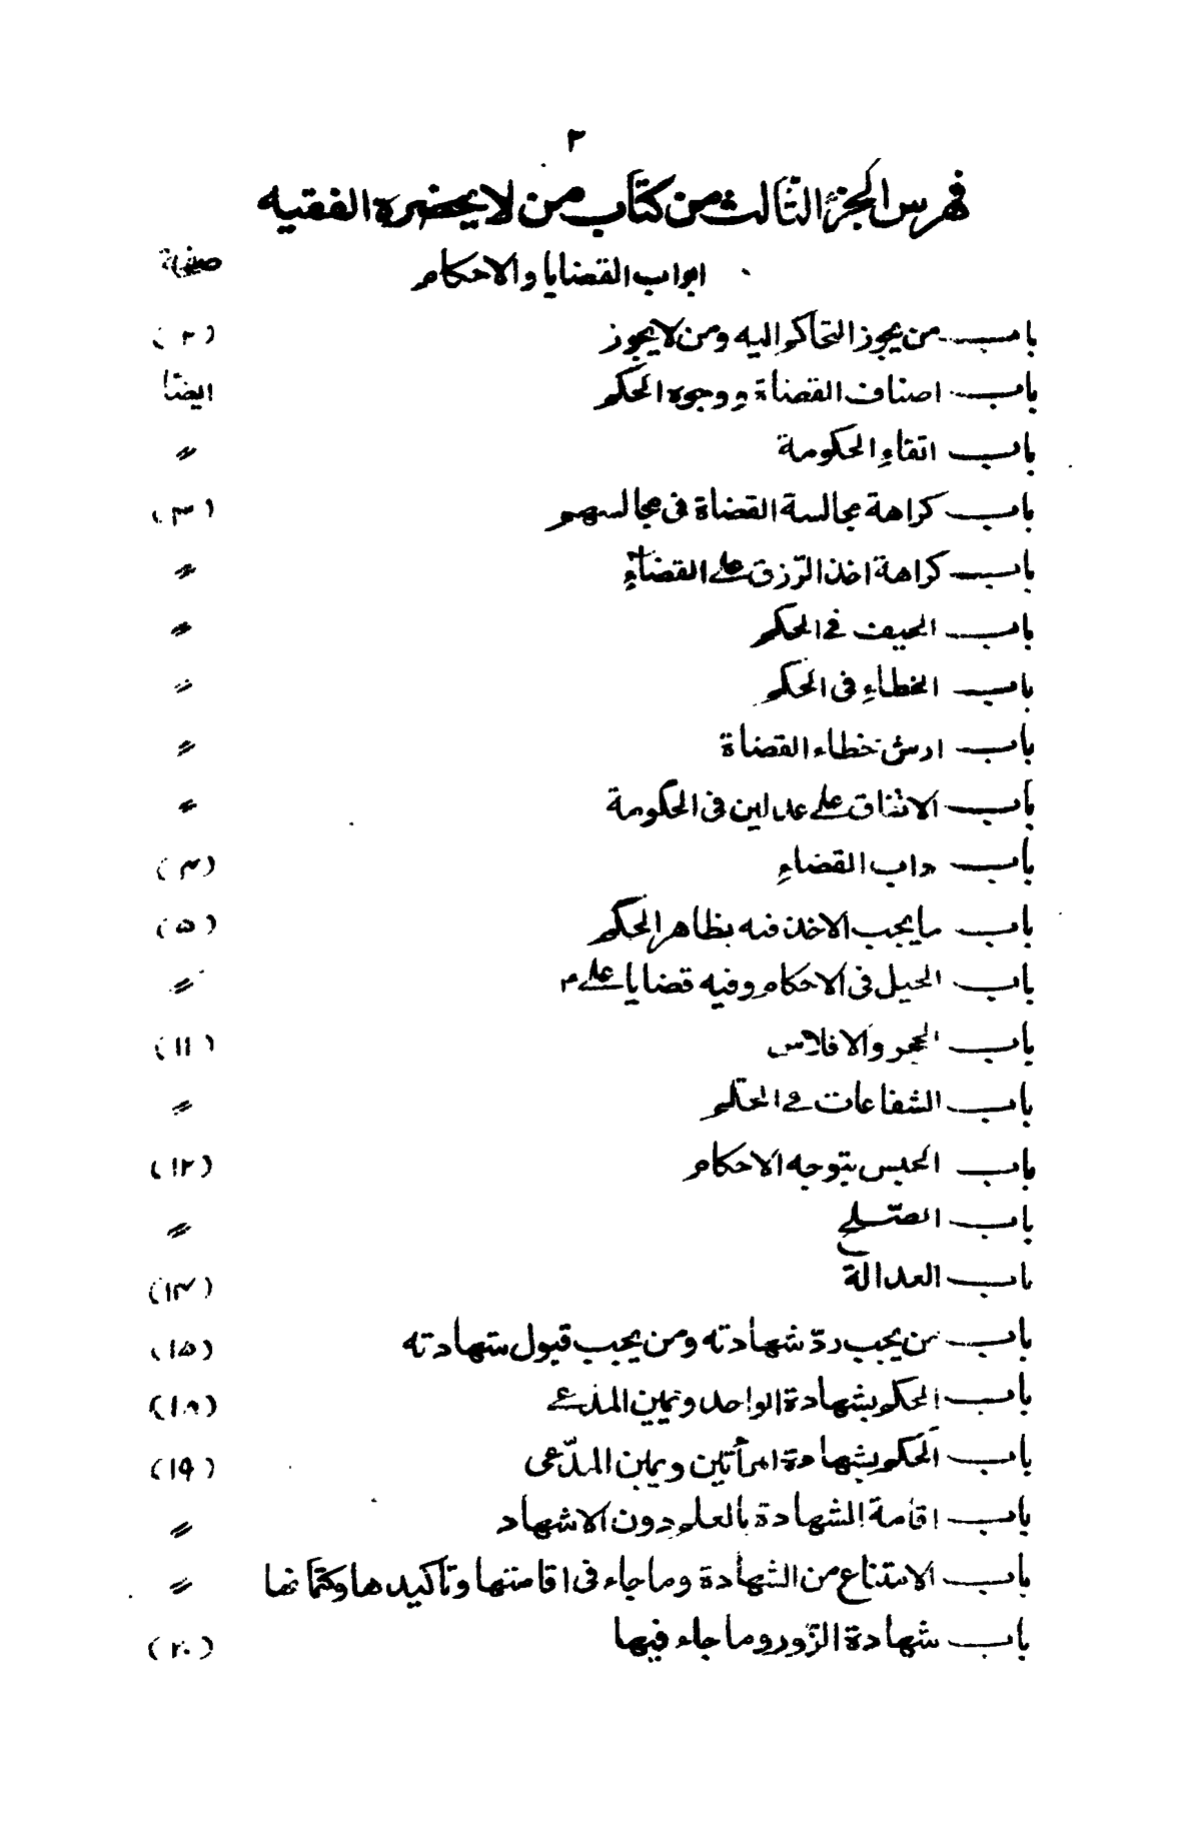 ٢
فهرس الجزء الثالث من كتاب من لا يحضره الفقيه
ابواب القضايا والاحكام صفحة
باب من يجوز التحاكم اليه ومن لا يجوز (٢)
باب اصناف القضاة ووجوه الحكم ايضًا
باب اتقاءِ الحكومة 〃
باب كراهة مجالسة القضاة فى مجالسهم (٣)
باب كراهة اخذ الرّزق على القضاءِ 〃
باب الحيف فى الحكم 〃
باب الخطاءِ فى الحكم 〃
باب ارش خطاء القضاة 〃
باب الاتفاق على عدلين فى الحكومة 〃
باب داب القضاءِ (٤)
باب ما يجب الاخذ فيه بظاهر الحكم (٥)
باب الحيل فى الاحكام وفيه قضايا على ٣ 〃
باب الحجر والافلاس (١١)
باب الشفاعات فى الحكم 〃
باب الحبس بتوجه الاحكام (١٢)
باب الصّلح 〃
باب العدالة (١٣)
باب من يجب ردّ شهادته ومن يجب قبول شهادته (١٥)
باب الحكم بشهادة الواحد ويمين المدعى (١٨)
باب الحكم بشهادة امرأتين ويمين المدّعى (١٩)
باب اقامة الشهادة بالعلم دون الاشهاد 〃
باب الامتناع من الشهادة وما جاء فى اقامتها وتاكيدها وكتمانها 〃
باب شهادة الزّور وما جاء فيها (٢٠)